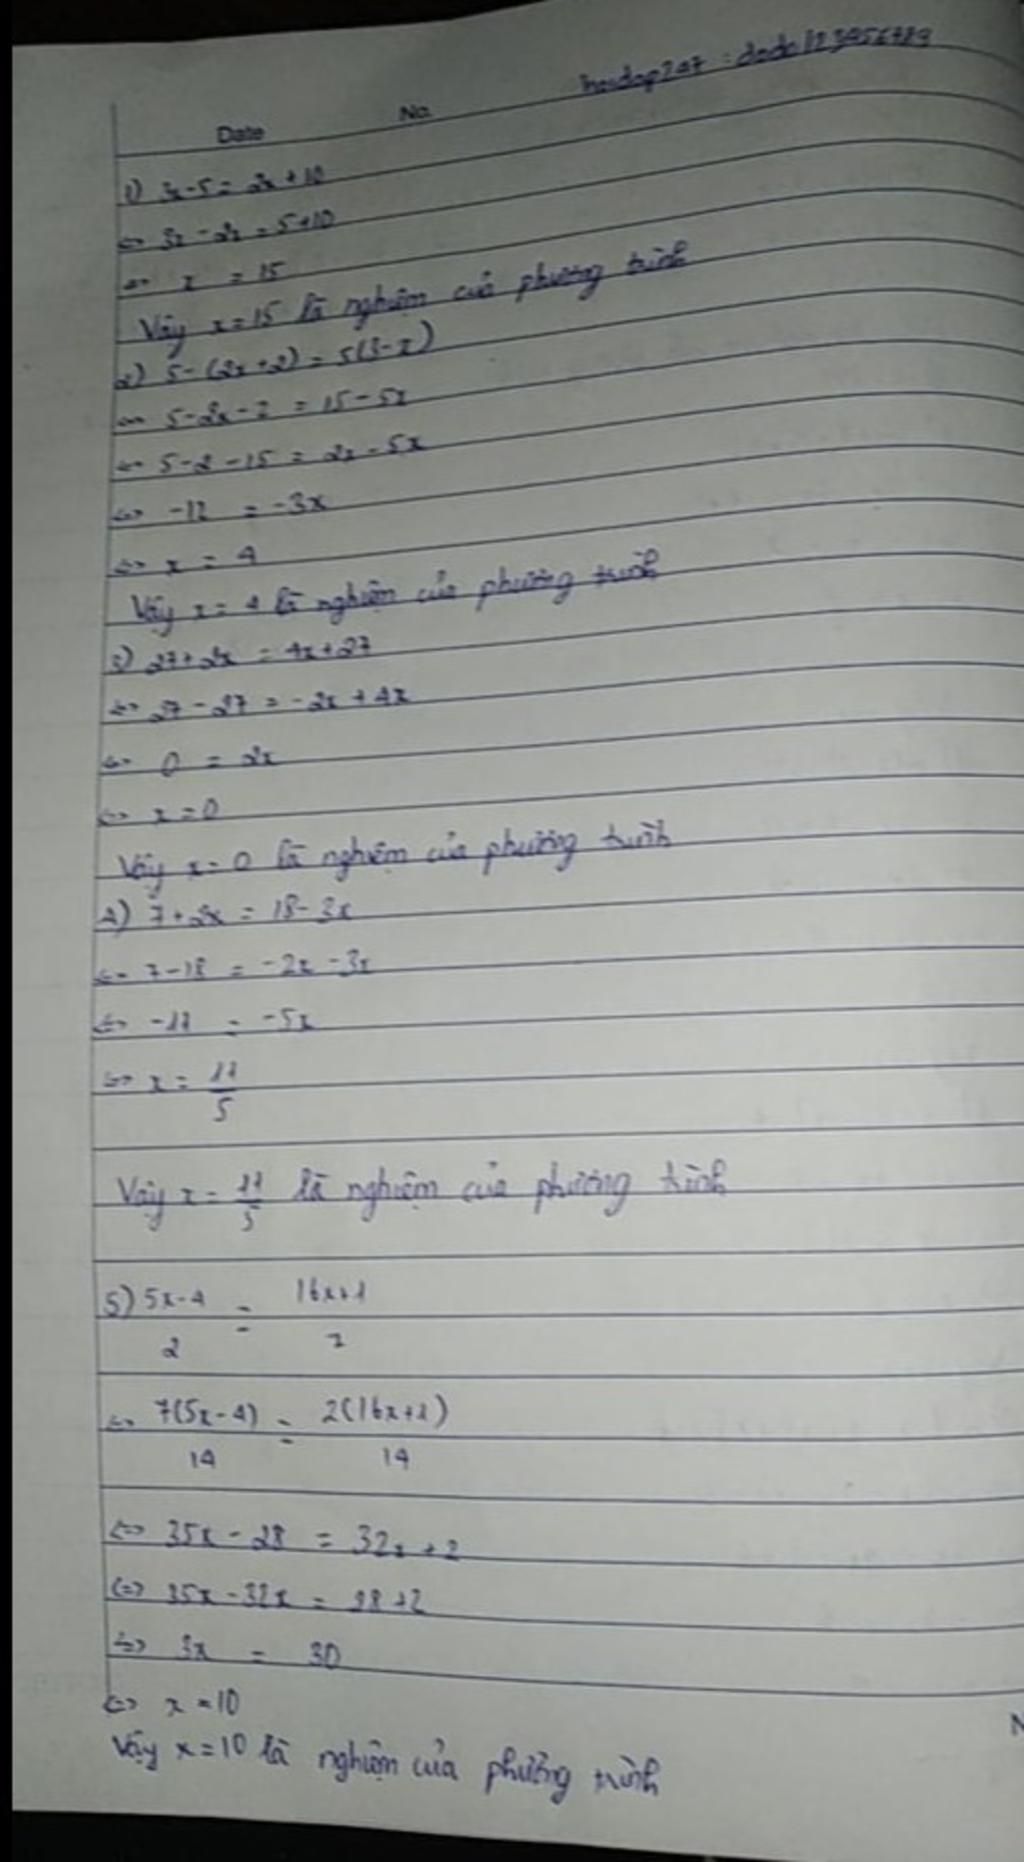 hoidap247 : dodo123456789
Date No.
1) 3x-5 = 2x+10
<=> 3x-2x = 5+10
<=> x = 15
Vậy x=15 là nghiệm của phương trình
2) 5-(2x+2) = 5(3-x)
<=> 5-2x-2 = 15-5x
<=> 5-2-15 = 2x-5x
<=> -12 = -3x
<=> x = 4
Vậy x=4 là nghiệm của phương trình
3) 27+2x = 4x+27
<=> 27-27 = -2x+4x
<=> 0 = 2x
<=> x=0
Vậy x=0 là nghiệm của phương trình
4) 7+2x = 18-3x
<=> 7-18 = -2x-3x
<=> -11 = -5x
<=> x = 11/5
Vậy x = 11/5 là nghiệm của phương trình
5) 5x-4/2 = 16x+1/7
<=> 7(5x-4)/14 = 2(16x+1)/14
<=> 35x-28 = 32x+2
<=> 35x-32x = 28+2
<=> 3x = 30
<=> x = 10
Vậy x=10 là nghiệm của phương trình